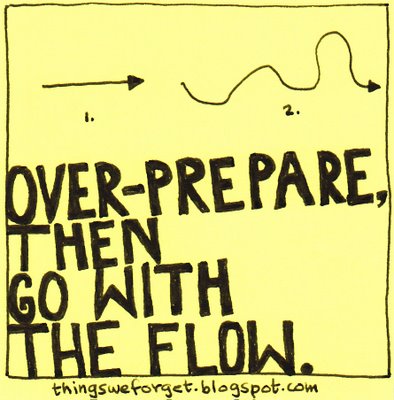 1. 2.
OVER-PREPARE,
THEN
GO WITH
THE FLOW.
thingsweforget.blogspot.com